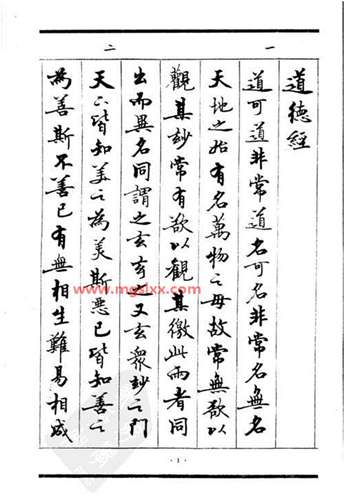 一
二
道德經
道可道非常道名可名非常名無名
天地之始有名萬物之母故常無欲以
觀其妙常有欲以觀其徼此兩者同
出而異名同謂之玄玄之又玄眾妙之門
天下皆知美之為美斯惡已皆知善之
為善斯不善已有無相生難易相成
www.mgslxx.com
·1·